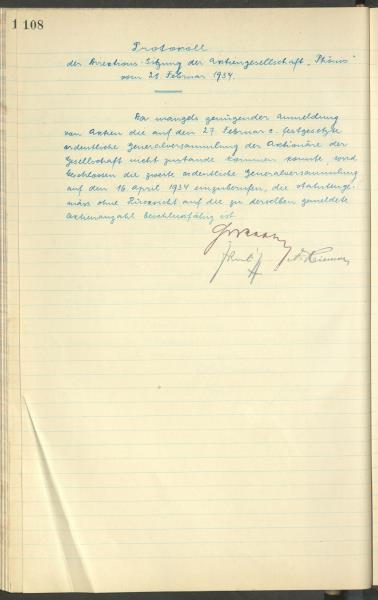 1 108
Protokoll
der Direktions-Sitzung der Aktiengesellschaft "Phönix"
vom 28 Februar 1934.
Da mangels genügender Anmeldung
von Aktien die auf den 27. Februar c. festgesetzte
ordentliche Generalversammlung der Aktionäre der
Gesellschaft nicht zustande kommen konnte, wird
beschlossen die zweite ordentliche Generalversammlung
auf den 16. April 1934 einzuberufen, die statutenge-
mäss ohne Rücksicht auf die zu derselben gemeldete
Aktienanzahl beschlussfähig ist